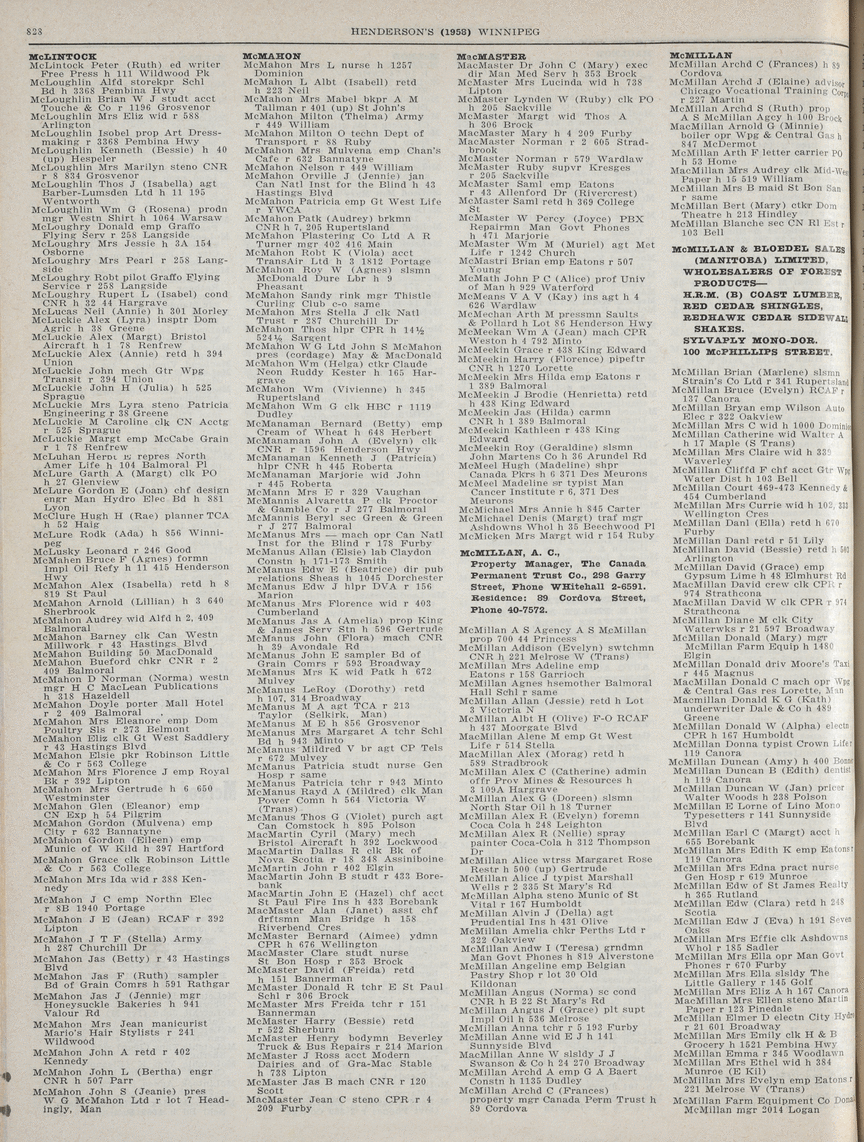 828
HENDERSON'S (1958) WINNIPEG
McLINTOCK
McLintock Peter (Ruth) ed writer
Free Press h 111 Wildwood Pk
McLoughlin Alfd storekpr Schl
Bd h 3368 Pembina Hwy
McLoughlin Brian W J studt acct
Touche & Co r 1196 Grosvenor
McLoughlin Mrs Eliz wid r 588
Arlington
McLoughlin Isobel prop Art Dress-
making r 3368 Pembina Hwy
McLoughlin Kenneth (Bessie) h 40
(up) Hespeler
McLoughlin Mrs Marilyn steno CNR
r 8 834 Grosvenor
McLoughlin Thos J (Isabella) agt
Barber-Lumsden Ltd h 11 195
Wentworth
McLoughlin Wm G (Rosena) prodn
mgr Westn Shirt h 1064 Warsaw
McLoughry Donald emp Graffo
Flying Serv r 258 Langside
McLoughry Mrs Jessie h 3A 154
Osborne
McLoughry Mrs Pearl r 258 Lang-
side
McLoughry Robt pilot Graffo Flying
Service r 258 Langside
McLoughry Rupert L (Isabel) cond
CNR h 32 44 Hargrave
McLucas Neil (Annie) h 301 Morley
McLuckie Alex (Lyra) insptr Dom
Agric h 38 Greene
McLuckie Alex (Margt) Bristol
Aircraft h 1 78 Renfrew
McLuckie Alex (Annie) retd h 394
Union
McLuckie John mech Gtr Wpg
Transit r 394 Union
McLuckie John H (Julia) h 525
Sprague
McLuckie Mrs Lyra steno Patricia
Engineering r 38 Greene
McLuckie M Caroline clk CN Acctg
r 525 Sprague
McLuckie Margt emp McCabe Grain
r 1 78 Renfrew
McLuhan Heros is repres North
Amer Life h 104 Balmoral Pl
McLure Garth A (Margt) clk PO
h 27 Glenview
McLure Gordon E (Joan) chf design
engr Man Hydro Elec Bd h 881
Lyon
McClure Hugh H (Rae) planner TCA
h 52 Haig
McLure Rodk (Ada) h 856 Winni-
peg
McLusky Leonard r 246 Good
McMahen Bruce F (Agnes) formn
Impl Oil Refy h 11 415 Henderson
Hwy
McMahon Alex (Isabella) retd h 8
819 St Paul
McMahon Arnold (Lillian) h 3 640
Sherbrook
McMahon Audrey wid Alfd h 2, 409
Balmoral
McMahon Barney clk Can Westn
Millwork r 43 Hastings Blvd
McMahon Building 50 MacDonald
McMahon Bueford chkr CNR r 2
409 Balmoral
McMahon D Norman (Norma) westn
mgr H C MacLean Publications
h 318 Hazeldell
McMahon Doyle porter Mall Hotel
r 2 409 Balmoral
McMahon Mrs Eleanore emp Dom
Poultry Sls r 273 Belmont
McMahon Eliz clk Gt West Saddlery
r 43 Hastings Blvd
McMahon Elsie pkr Robinson Little
& Co r 563 College
McMahon Mrs Florence J emp Royal
Bk r 392 Lipton
McMahon Mrs Gertrude h 6 650
Westminster
McMahon Glen (Eleanor) emp
CN Exp h 54 Pilgrim
McMahon Gordon (Mulvena) emp
City r 632 Bannatyne
McMahon Gordon (Eileen) emp
Munic of W Kild h 397 Hartford
McMahon Grace clk Robinson Little
& Co r 563 College
McMahon Mrs Ida wid r 388 Ken-
nedy
McMahon J C emp Northn Elec
r 8B 1940 Portage
McMahon J E (Jean) RCAF r 392
Lipton
McMahon J T F (Stella) Army
h 287 Churchill Dr
McMahon Jas (Betty) r 43 Hastings
Blvd
McMahon Jas F (Ruth) sampler
Bd of Grain Comrs h 591 Rathgar
McMahon Jas J (Jennie) mgr
Honeysuckle Bakeries h 941
Valour Rd
McMahon Mrs Jean manicurist
Mario's Hair Stylists r 241
Wildwood
McMahon John A retd r 402
Kennedy
McMahon John L (Bertha) engr
CNR h 507 Parr
McMahon John S (Jeanie) pres
W G McMahon Ltd r lot 7 Head-
ingly, Man
McMAHON
McMahon Mrs L nurse h 1257
Dominion
McMahon L Albt (Isabell) retd
h 223 Neil
McMahon Mrs Mabel bkpr A M
Tallman r 401 (up) St John's
McMahon Milton (Thelma) Army
r 449 William
McMahon Milton O techn Dept of
Transport r 88 Ruby
McMahon Mrs Mulvena emp Chan's
Cafe r 632 Bannatyne
McMahon Nelson r 449 William
McMahon Orville J (Jennie) jan
Can Natl Inst for the Blind h 43
Hastings Blvd
McMahon Patricia emp Gt West Life
r YWCA
McMahon Patk (Audrey) brkmn
CNR h 7, 205 Rupertsland
McMahon Plastering Co Ltd A R
Turner mgr 402 416 Main
McMahon Robt K (Viola) acct
TransAir Ltd h 3 1812 Portage
McMahon Roy W (Agnes) slsmn
McDonald Dure Lbr h 9
Pheasant
McMahon Sandy rink mgr Thistle
Curling Club c-o same
McMahon Mrs Stella J clk Natl
Trust r 287 Churchill Dr
McMahon Thos hlpr CPR h 14½
524½ Sargent
McMahon W G Ltd John S McMahon
pres (cordage) May & MacDonald
McMahon Wm (Helga) ctkr Claude
Neon Ruddy Kester h 165 Har-
grave
McMahon Wm (Vivienne) h 345
Rupertsland
McMahon Wm G clk HBC r 1119
Dudley
McManaman Bernard (Betty) emp
Cream of Wheat h 648 Herbert
McManaman John A (Evelyn) clk
CNR r 1596 Henderson Hwy
McManaman Kenneth J (Patricia)
hlpr CNR h 445 Roberta
McManaman Marjorie wid John
r 445 Roberta
McMann Mrs E r 329 Vaughan
McMannis Alvaretta P clk Proctor
& Gamble Co r J 277 Balmoral
McMannis Beryl sec Green & Green
r J 277 Balmoral
McManus Mrs — mach opr Can Natl
Inst for the Blind r 178 Furby
McManus Allan (Elsie) lab Claydon
Constn h 171-173 Smith
McManus Edw E (Beatrice) dir pub
relations Sheas h 1045 Dorchester
McManus Edw J hlpr DVA r 156
Marion
McManus Mrs Florence wid r 403
Cumberland
McManus Jas A (Amelia) prop King
& James Serv Stn h 596 Gertrude
McManus John (Flora) mach CNR
h 39 Avondale Rd
McManus John E sampler Bd of
Grain Comrs r 593 Broadway
McManus Mrs K wid Patk h 672
Mulvey
McManus LeRoy (Dorothy) retd
h 107, 314 Broadway
McManus M A agt TCA r 213
Taylor (Selkirk, Man)
McManus M E h 856 Grosvenor
McManus Mrs Margaret A tchr Schl
Bd h 943 Minto
McManus Mildred V br agt CP Tels
r 672 Mulvey
McManus Patricia studt nurse Gen
Hosp r same
McManus Patricia tchr r 943 Minto
McManus Rayd A (Mildred) clk Man
Power Comn h 564 Victoria W
(Trans)
McManus Thos G (Violet) purch agt
Can Comstock h 895 Polson
MacMartin Cyril (Mary) mech
Bristol Aircraft h 392 Lockwood
McMartin Dallas R clk Bk of
Nova Scotia r 18 348 Assiniboine
McMartin John r 402 Elgin
MacMartin John B studt r 433 Bore-
bank
McMartin John E (Hazel) chf acct
St Paul Fire Ins h 433 Borebank
MacMaster Alan (Janet) asst chf
drftsmn Man Bridge h 158
Riverbend Cres
McMaster Bernard (Aimee) ydmn
CPR h 676 Wellington
MacMaster Clare studt nurse
St Bon Hosp r 353 Brock
McMaster David (Freida) retd
h 151 Bannerman
McMaster Donald R tchr E St Paul
Schl r 306 Brock
McMaster Mrs Freida tchr r 151
Bannerman
McMaster Harry (Bessie) retd
r 522 Sherburn
McMaster Henry bodymn Beverley
Truck & Bus Repairs r 214 Marion
McMaster J Ross acct Modern
Dairies and of Gra-Mac Stable
h 738 Lipton
McMaster Jas B mach CNR r 120
Scott
MacMaster Jean C steno CPR r 4
209 Furby
MacMASTER
MacMaster Dr John C (Mary) exec
dir Man Med Serv h 353 Brock
McMaster Mrs Lucinda wid h 738
Lipton
McMaster Lynden W (Ruby) clk PO
h 205 Sackville
McMaster Margt wid Thos A
h 306 Brock
MacMaster Mary h 4 209 Furby
MacMaster Norman r 2 605 Strad-
brook
McMaster Norman r 579 Wardlaw
McMaster Ruby supvr Kresges
r 205 Sackville
McMaster Saml emp Eatons
r 43 Allenford Dr (Rivercrest)
McMaster Saml retd h 369 College
St
McMaster W Percy (Joyce) PBX
Repairmn Man Govt Phones
h 471 Marjorie
McMaster Wm M (Muriel) agt Met
Life r 1242 Church
McMastri Brian emp Eatons r 507
Young
McMath John P C (Alice) prof Univ
of Man h 929 Waterford
McMeans V A V (Kay) ins agt h 4
626 Wardlaw
McMechan Arth M pressmn Saults
& Pollard h Lot 86 Henderson Hwy
McMeekan Wm A (Jean) mach CPR
Weston h 4 792 Minto
McMeekin Grace r 438 King Edward
McMeekin Harry (Florence) pipeftr
CNR h 1270 Lorette
McMeekin Mrs Hilda emp Eatons r
1 389 Balmoral
McMeekin J Brodie (Henrietta) retd
h 438 King Edward
McMeekin Jas (Hilda) carmn
CNR h 1 389 Balmoral
McMeekin Kathleen r 438 King
Edward
McMeekin Roy (Geraldine) slsmn
John Martens Co h 36 Arundel Rd
McMeel Hugh (Madeline) shpr
Canada Pkrs h 6 371 Des Meurons
McMeel Madeline sr typist Man
Cancer Institute r 6, 371 Des
Meurons
McMichael Mrs Annie h 845 Carter
McMichael Denis (Margt) traf mgr
Ashdowns Whol h 35 Beechwood Pl
McMicken Mrs Margt wid r 154 Ruby
McMILLAN, A. C.,
Property Manager, The Canada
Permanent Trust Co., 298 Garry
Street, Phone WHitehall 2-6591.
Residence: 89 Cordova Street,
Phone 40-7572.
McMillan A S Agency A S McMillan
prop 700 44 Princess
McMillan Addison (Evelyn) swtchmn
CNR h 221 Melrose W (Trans)
McMillan Mrs Adeline emp
Eatons r 158 Garrioch
McMillan Agnes hsemother Balmoral
Hall Schl r same
McMillan Allan (Jessie) retd h Lot
3 Victoria N
McMillan Albt H (Olive) F-O RCAF
h 437 Moorgate Blvd
MacMillan Alene M emp Gt West
Life r 514 Stella
MacMillan Alex (Morag) retd h
589 Stradbrook
McMillan Alex C (Catherine) admin
offr Prov Mines & Resources h
3 109A Hargrave
McMillan Alex G (Doreen) slsmn
North Star Oil h 18 Turner
McMillan Alex R (Evelyn) foremn
Coca Cola h 248 Leighton
McMillan Alex R (Nellie) spray
painter Coca-Cola h 312 Thompson
Dr
McMillan Alice wtrss Margaret Rose
Restr h 500 (up) Gertrude
McMillan Alice J typist Marshall
Wells r 2 335 St Mary's Rd
McMillan Alpha steno Munic of St
Vital r 167 Humboldt
McMillan Alvin J (Della) agt
Prudential Ins h 431 Olive
McMillan Amelia chkr Perths Ltd r
322 Oakview
McMillan Andw I (Teresa) grndmn
Man Govt Phones h 819 Alverstone
McMillan Angeline emp Belgian
Pastry Shop r lot 30 Old
Kildonan
McMillan Angus (Norma) sc cond
CNR h B 22 St Mary's Rd
McMillan Angus J (Grace) plt supt
Impl Oil h 526 Melrose
McMillan Anna tchr r 5 193 Furby
McMillan Anne wid E J h 141
Sunnyside Blvd
MacMillan Anne W slsldy J J
Swanson & Co h 24 270 Broadway
McMillan Archd A emp G A Baert
Constn h 1135 Dudley
McMillan Archd C (Frances)
property mgr Canada Perm Trust h
89 Cordova
McMILLAN
McMillan Archd C (Frances) h 89
Cordova
McMillan Archd J (Elaine)
Chicago Vocational Training
r 227 Martin
McMillan Archd S (Ruth) prop
A S McMillan Agcy h 100 Brock
MacMillan Arnold G (Minnie)
boiler opr Wpg & Central Gas h
847 McDermot
McMillan Arth F letter carrier PO
h 53 Home
MacMillan Mrs Audrey clk Mid-West
Paper h 15 519 William
McMillan Mrs B maid St Bon San
r same
McMillan Bert (Mary) ctkr Dom
Theatre h 213 Hindley
McMillan Blanche sec CN Rl Est r
103 Bell
McMILLAN & BLOEDEL SALES
(MANITOBA) LIMITED,
WHOLESALERS OF FOREST
PRODUCTS—
H.R.M. (B) COAST LUMBER,
RED CEDAR SHINGLES,
REDHAWK CEDAR SIDEWALL
SHAKES.
SYLVAPLY MONO-DOR.
100 McPHILLIPS STREET.
McMillan Brian (Marlene) slsmn
Strain's Co Ltd r 341 Rupertsland
McMillan Bruce (Evelyn) RCAF r
137 Canora
McMillan Bryan emp Wilson Auto
Elec r 322 Oakview
McMillan Mrs C wid h 1000 Dominion
McMillan Catherine wid Walter A
h 17 Maple (S Trans)
McMillan Mrs Claire wid h 339
Waverley
McMillan Cliffd F chf acct Gtr Wpg
Water Dist h 103 Bell
McMillan Court 469-473 Kennedy &
454 Cumberland
McMillan Mrs Currie wid h 102, 333
Wellington Cres
McMillan Danl (Ella) retd h 670
Furby
McMillan Danl retd r 51 Lily
McMillan David (Bessie) retd h
Arlington
McMillan David (Grace) emp
Gypsum Lime h 48 Elmhurst Rd
MacMillan David crew clk CPR r
974 Strathcona
MacMillan David W clk CPR r 974
Strathcona
McMillan Diane M clk City
Waterwks r 21 597 Broadway
McMillan Donald (Mary) mgr
McMillan Farm Equip h 1480
Elgin
McMillan Donald driv Moore's Taxi
r 445 Magnus
MacMillan Donald C mach opr Wpg
& Central Gas res Lorette, Man
Macmillan Donald K G (Kath)
underwriter Dale & Co h 489
Greene
McMillan Donald W (Alpha) electn
CPR h 167 Humboldt
McMillan Donna typist Crown Life r
119 Canora
MacMillan Duncan (Amy) h 400
McMillan Duncan B (Edith) dentist
h 119 Canora
McMillan Duncan W (Jan) pricer
Walter Woods h 238 Polson
McMillan E Lorne of Lino Mono
Typesetters r 141 Sunnyside
Blvd
McMillan Earl C (Margt) acct h
655 Borebank
McMillan Mrs Edith K emp Eatons r
119 Canora
McMillan Mrs Edna pract nurse
Gen Hosp r 619 Munroe
McMillan Edw of St James Realty
h 365 Rutland
McMillan Edw (Clara) retd h 248
Scotia
McMillan Edw J (Eva) h 191 Seven
Oaks
McMillan Mrs Effie clk Ashdowns
Whol r 185 Sadler
McMillan Mrs Ella opr Man Govt
Phones r 670 Furby
McMillan Mrs Ella slsldy The
Little Gallery r 145 Golf
McMillan Mrs Eliz A h 167 Canora
MacMillan Mrs Ellen steno Martin
Paper r 123 Pinedale
McMillan Elmer D electn City Hydro
r 21 601 Broadway
McMillan Mrs Emily clk H & B
Grocery h 1521 Pembina Hwy
McMillan Emma r 345 Woodlawn
McMillan Mrs Ethel wid h 384
Munroe (E Kil)
McMillan Mrs Evelyn emp Eatons r
221 Melrose W (Trans)
McMillan Farm Equipment Co
McMillan mgr 2014 Logan